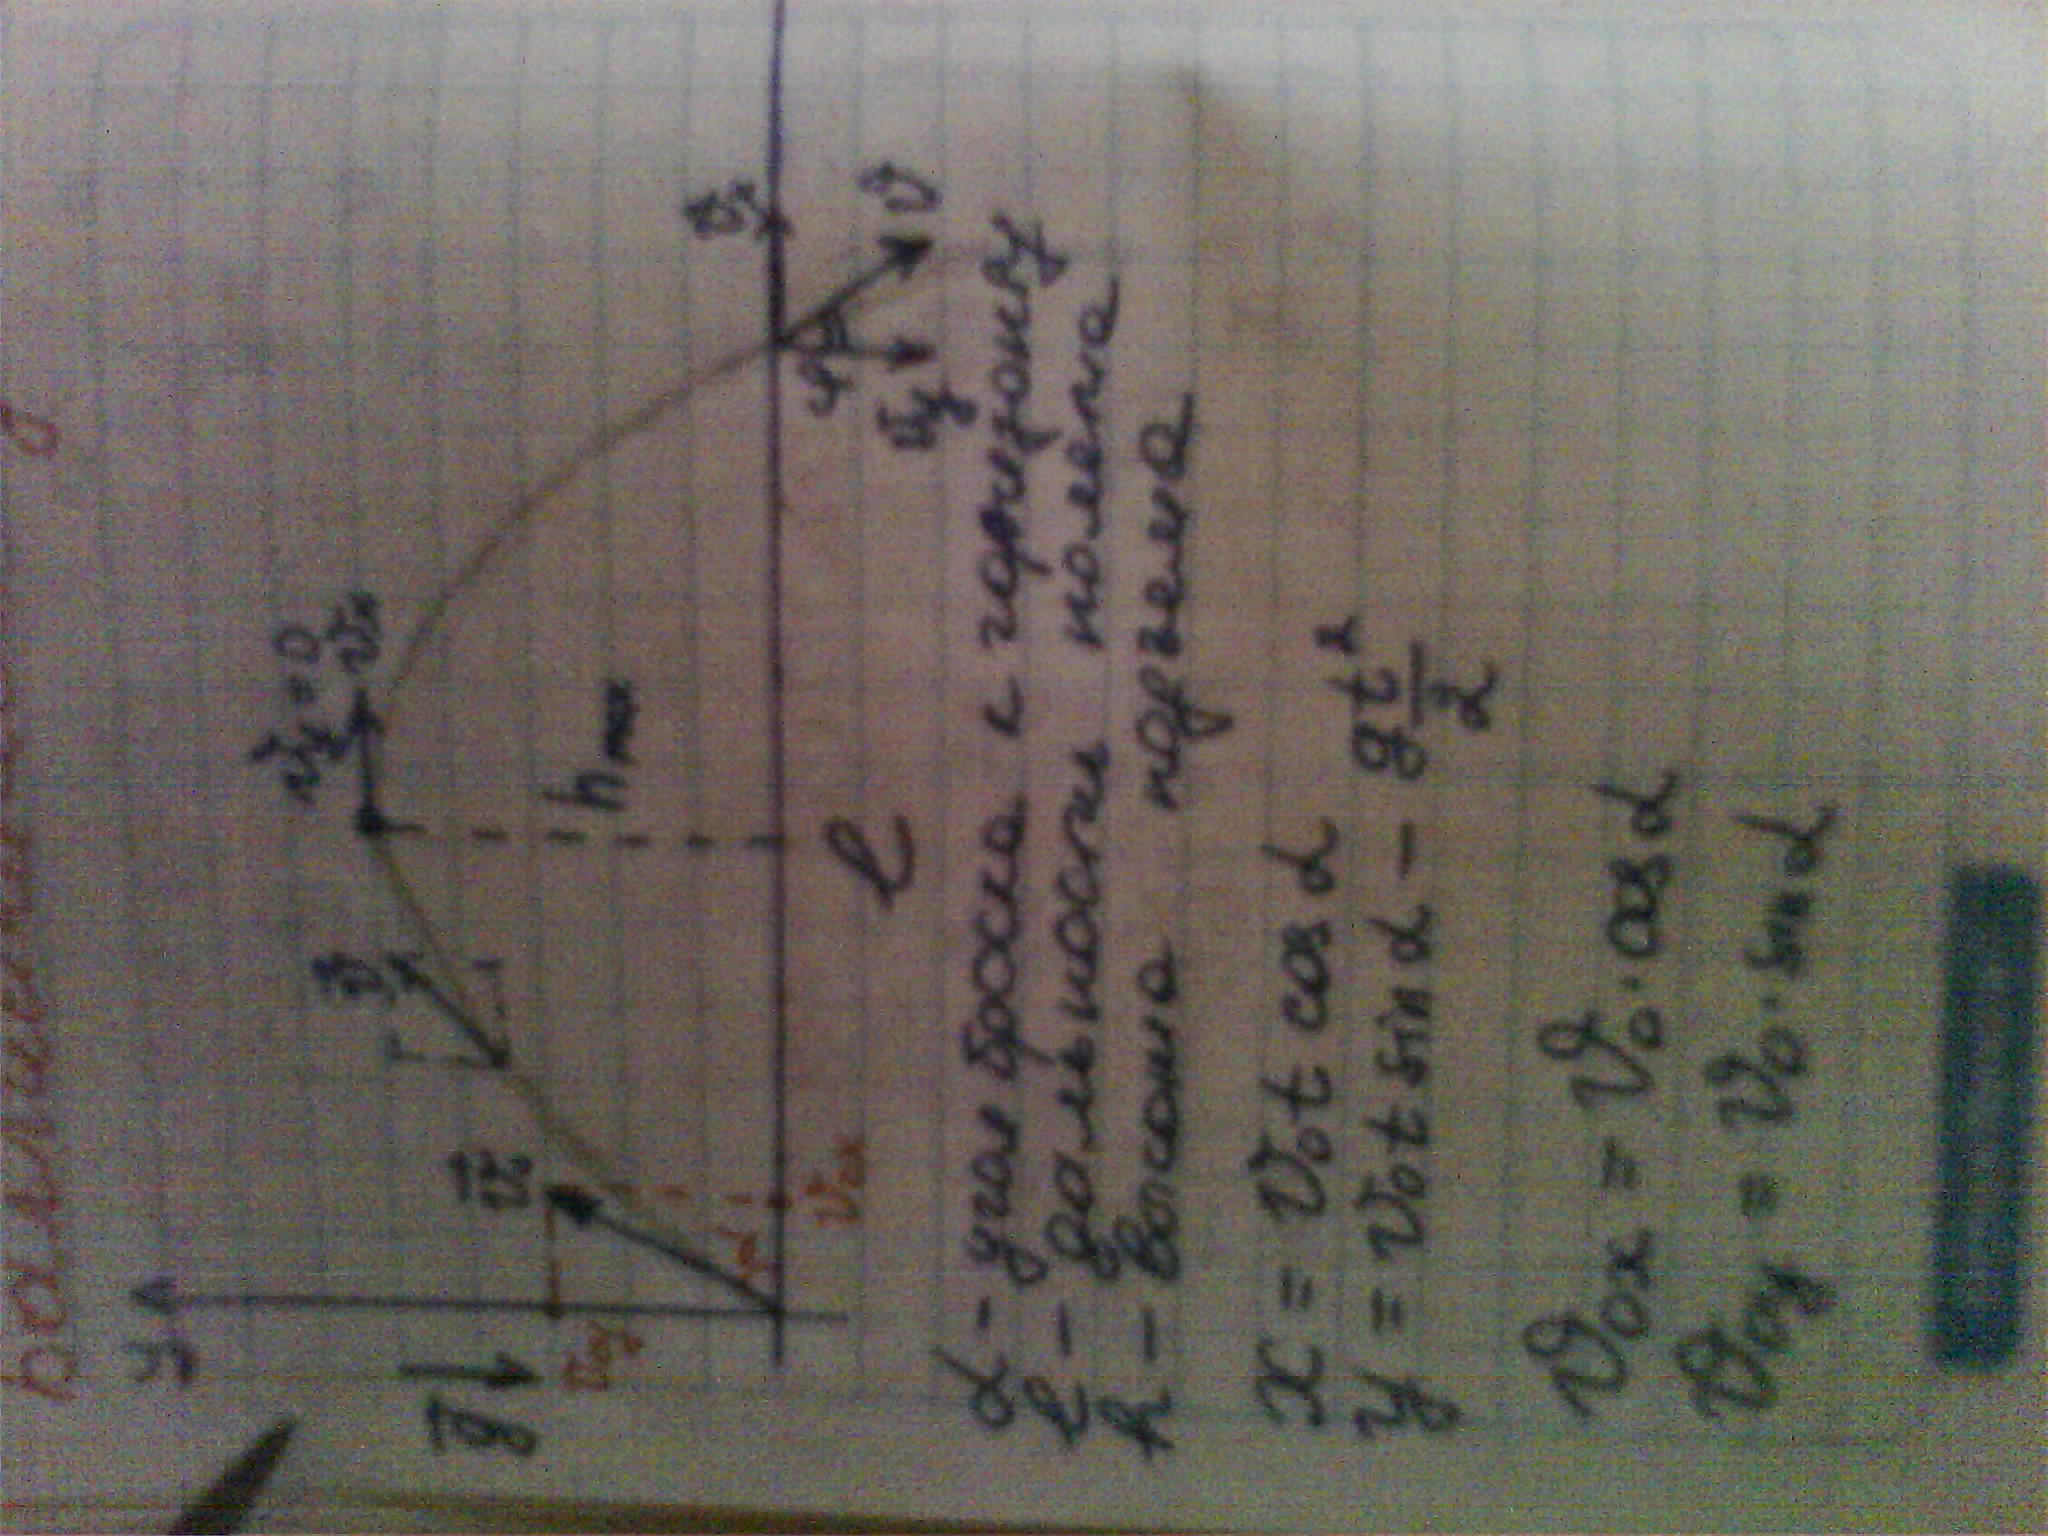 y
g
v₀y
v₀
α
v₀x
v
vy = 0
vx
hmax
l
vx
φ
vy
v
α - угол броска к горизонту
l - дальность полета
h - высота подъема
x = v₀t cos α
y = v₀t sin α - gt²/2
v₀x = v₀ · cos α
v₀y = v₀ · sin α